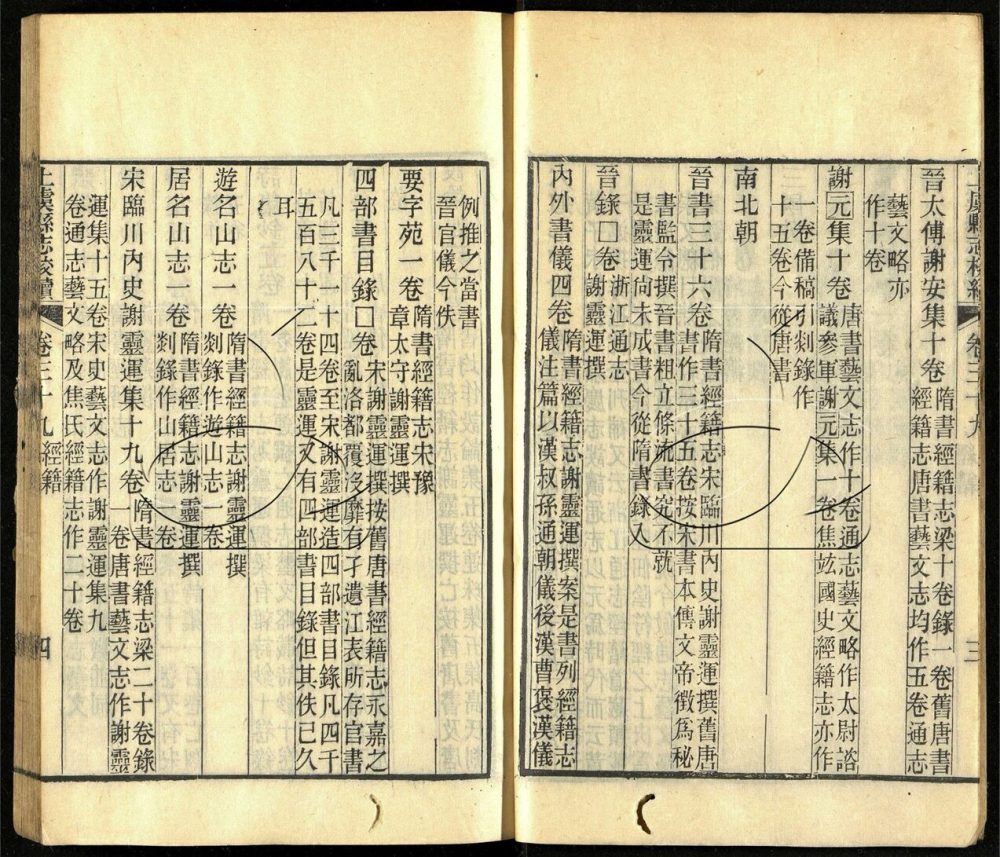 上虞縣志校續 卷三十九 經籍 三
晉太傅謝安集十卷 隋書經籍志梁十卷錄一卷舊唐書
經籍志唐書藝文志均作五卷通志
藝文略亦
作十卷
謝元集十卷 唐書藝文志作十卷通志藝文略作太尉諮
議參軍謝元集一卷焦竑國史經籍志亦作
一卷備稿引剡錄作
十五卷今從唐書
南北朝
晉書三十六卷 隋書經籍志宋臨川內史謝靈運撰舊唐
書作三十五卷按宋書本傳文帝徵爲秘
書監令撰晉書粗立條流書究不就
是靈運尚未成書今從隋書錄入
晉錄□卷 浙江通志
謝靈運撰
內外書儀四卷 隋書經籍志謝靈運撰案是書列經籍志
儀注篇以漢叔孫通朝儀後漢曹褒漢儀
例推之當書
晉官儀今佚
要字苑一卷 隋書經籍志宋豫
章太守謝靈運撰
四部書目錄□卷 宋謝靈運撰按舊唐書經籍志永嘉之
亂洛都覆沒靡有孑遺江表所存官書
凡三千一十四卷至宋謝靈運造四部書目錄凡四千
五百八十二卷是靈運又有四部書目錄但其佚已久
耳
遊名山志一卷 隋書經籍志謝靈運撰
剡錄作遊山志一卷
居名山志一卷 隋書經籍志謝靈運撰
剡錄作山居志一卷
宋臨川內史謝靈運集十九卷 隋書經籍志梁二十卷錄
一卷唐書藝文志作謝靈
運集十五卷宋史藝文志作謝靈運集九
卷通志藝文略及焦氏經籍志作二十卷
上虞縣志校續 卷三十九 經籍 四